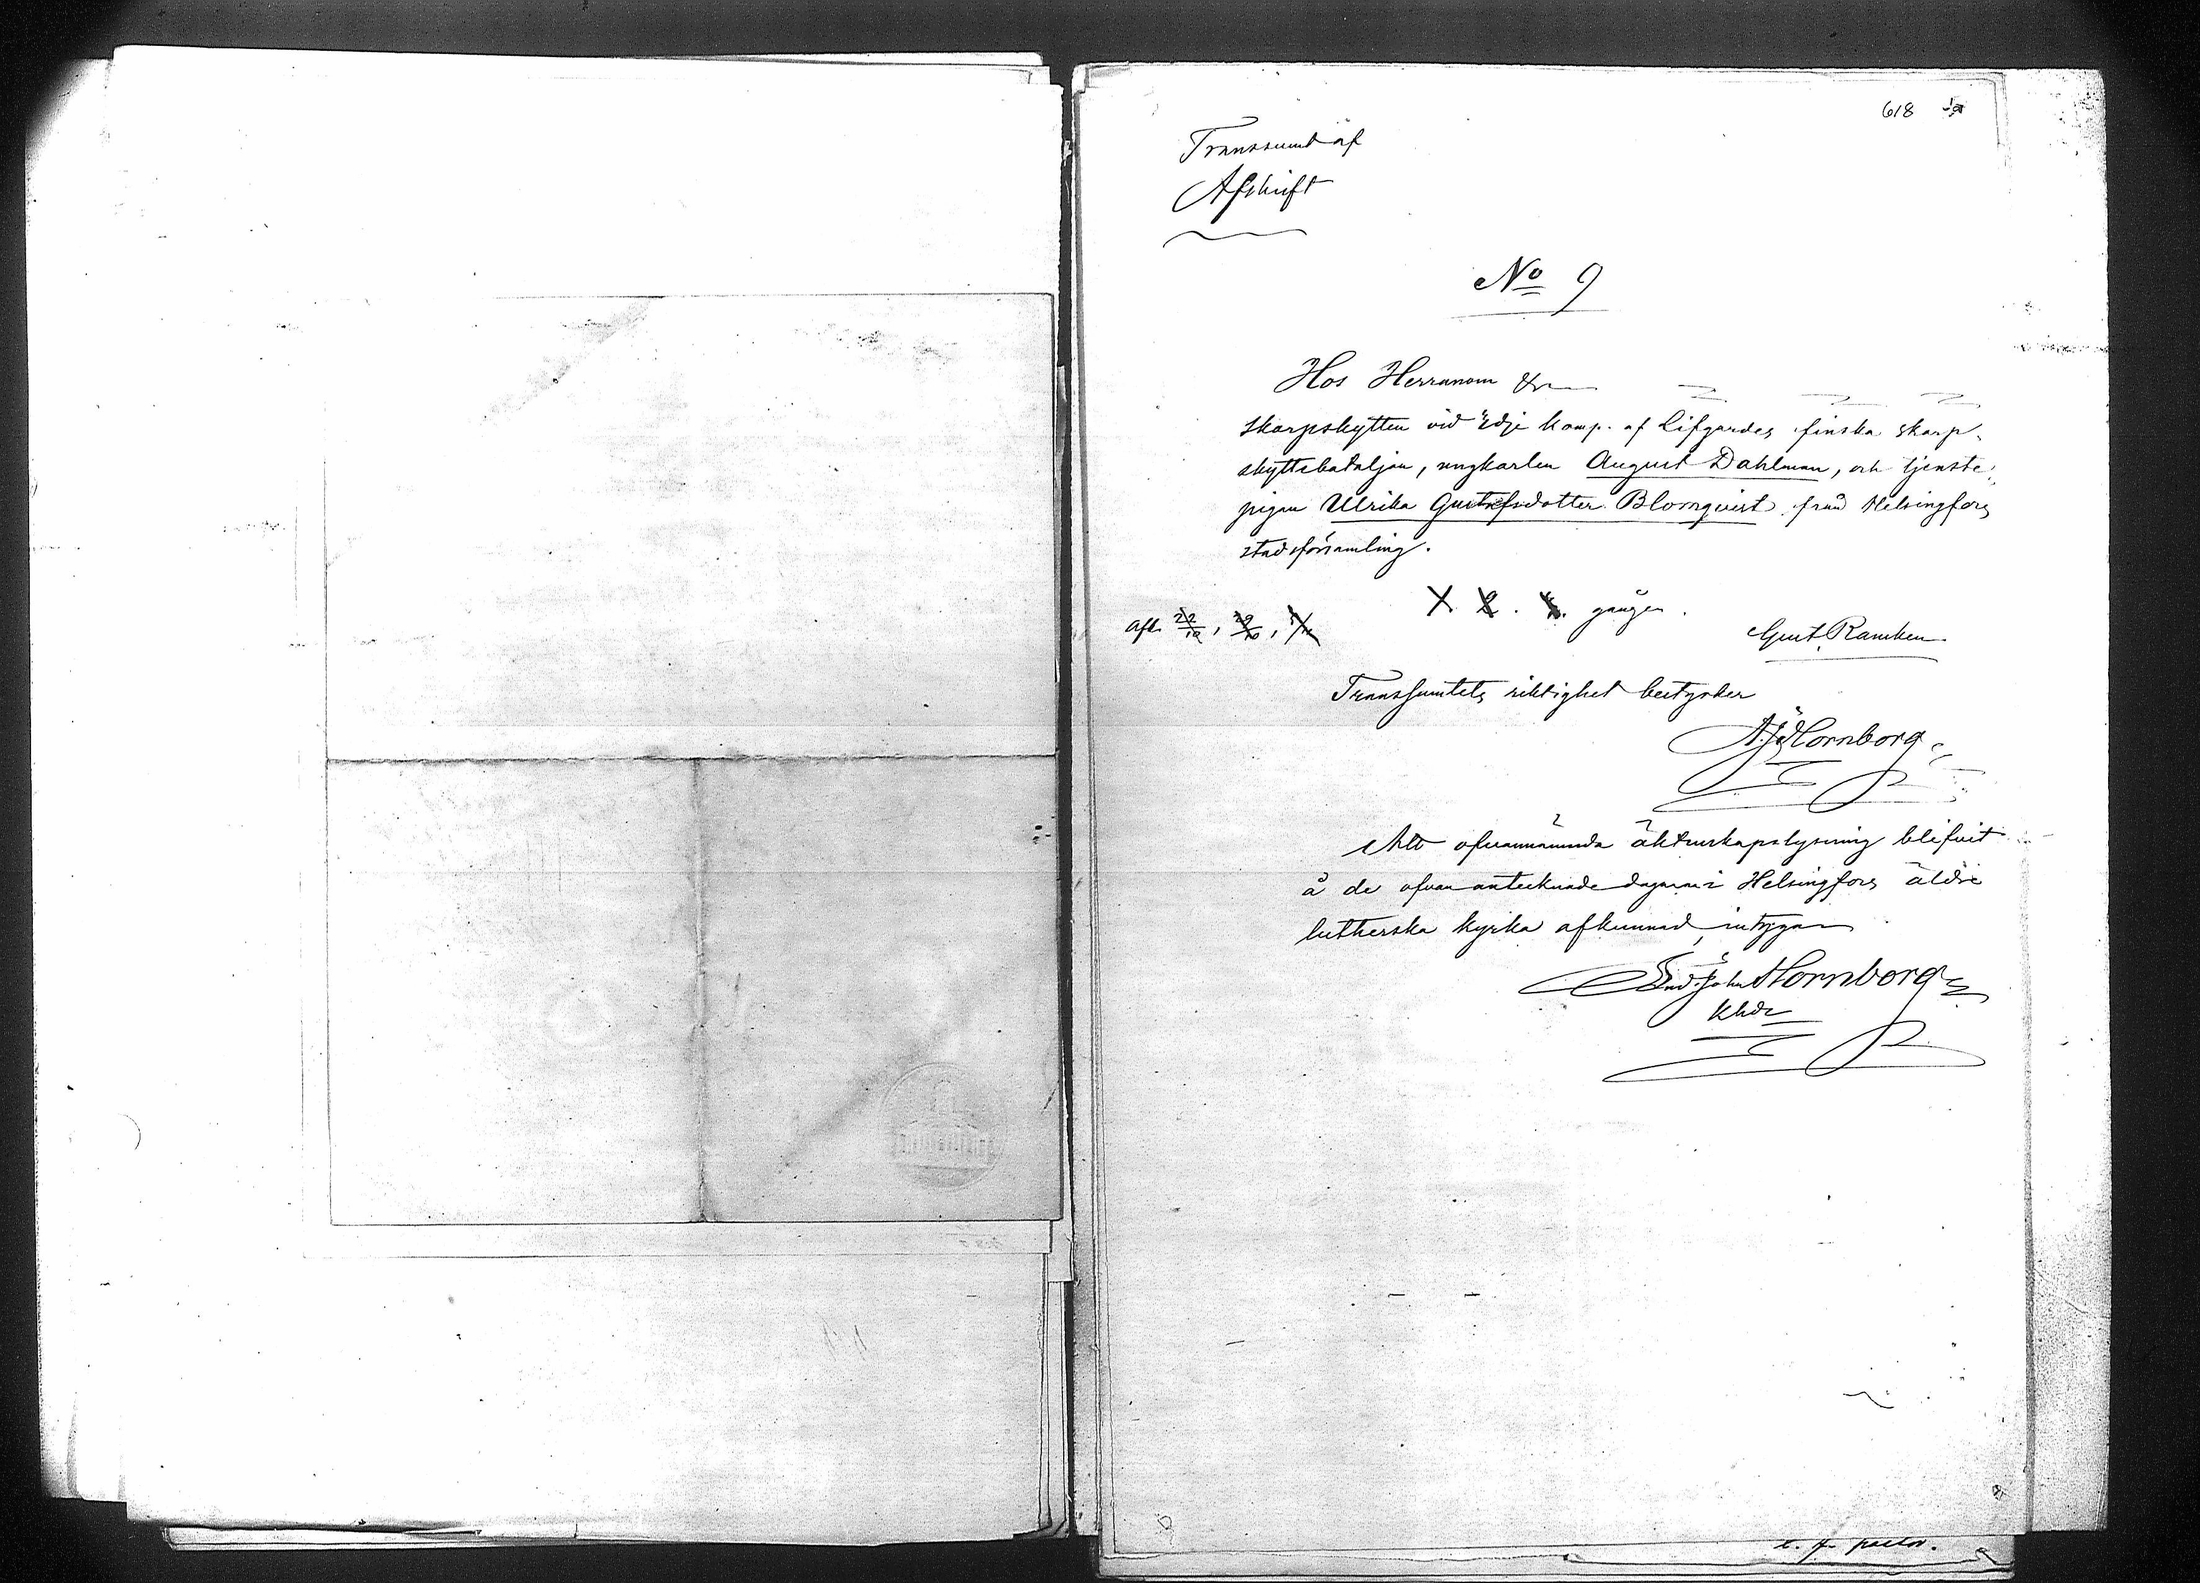 618
Transsumt af
Afskrift
No 9
Hos Herranom
skarpskytten vid komp. af Lifgardes finska skarp-
skyttebataljon, ungkarlen August Dahlman, och tjenste-
pigan Ulrika Gustafsdotter Blomqvist från Helsingfors
stadsförsamling.
1. 2. 3. gången.
Afk. 22/10, 29/10, 5/11
Gust. Rancken
Transsumtets riktighet bestyrker
A. J. Hornborg
Att ofvannämnda äktenskapslysning blifvit
å de ofvan antecknade dagarna i Helsingfors äldre
lutherska kyrka afkunnad, intygar
And. Joh. Hornborg
t. f. pastor.